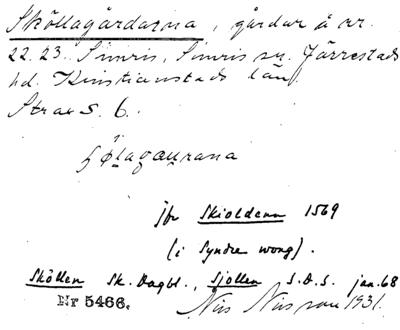 Sköllagårdarna, gårdar å nr.
22. 23. Simris, Simris sn. Järrestads
hd. Kristianstads län.
Strax S. 6.
jfr Skioldenn 1569
(i Syndre wong).
Skôllen Sk. Dagbl., Sjöllen S.D.S. jan. 68
Nr 5466. Nils Nilsson 1931.